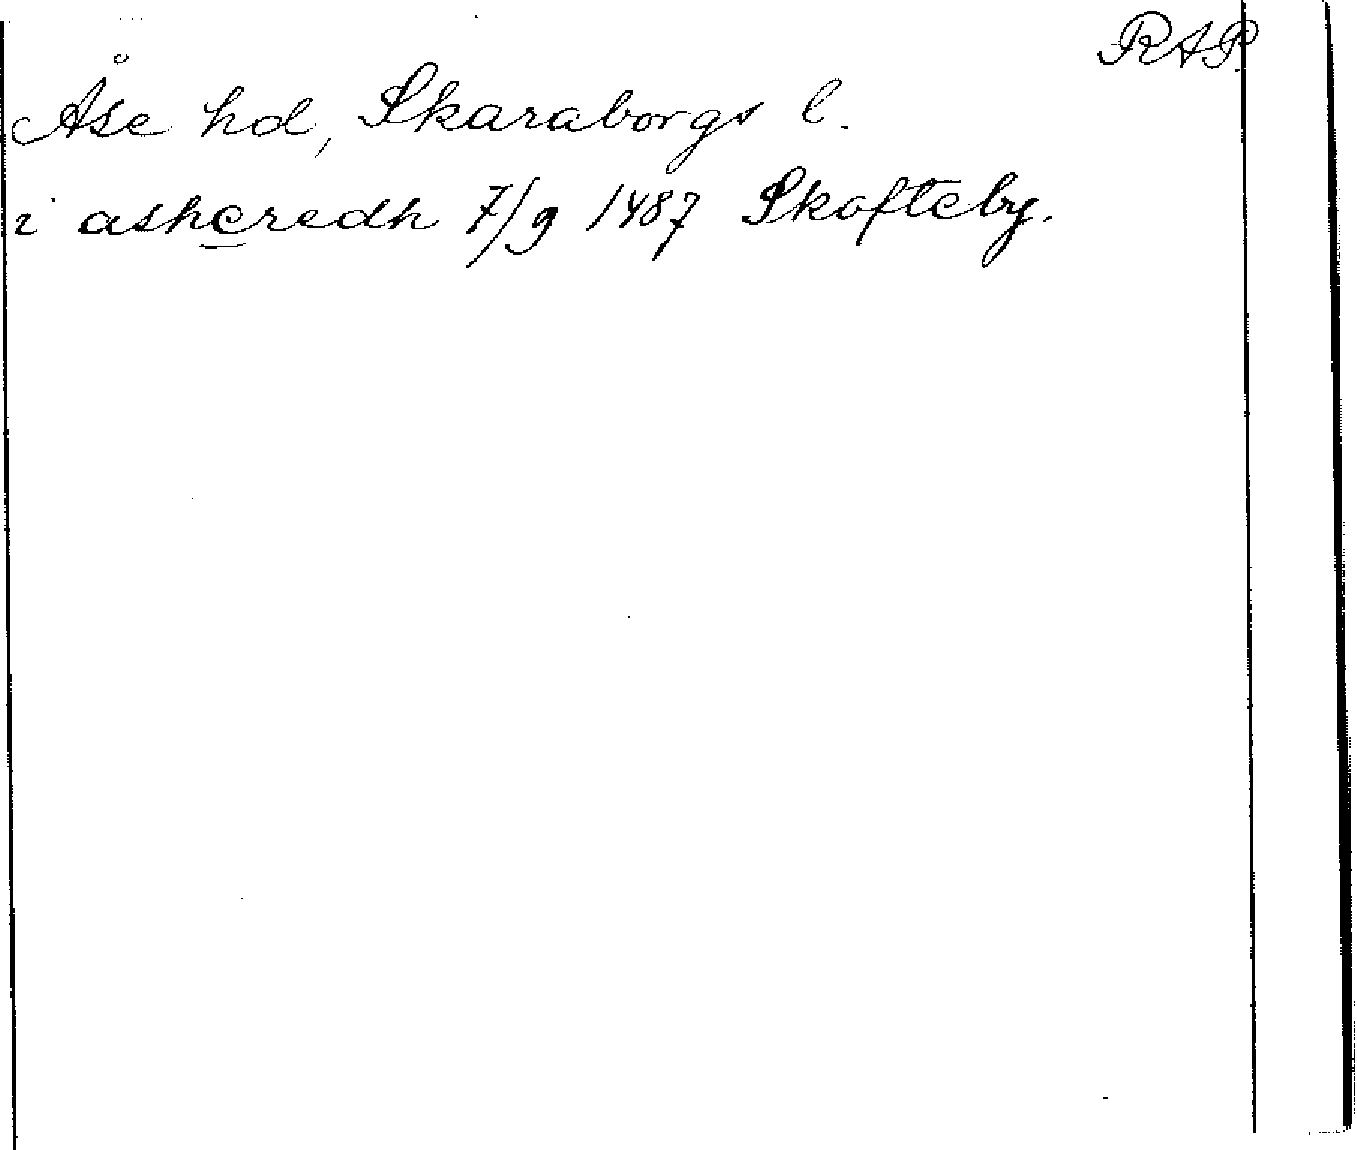 RAP
Åse hd, Skaraborgs l.
i asheredh 7/9 1487 Skofteby.